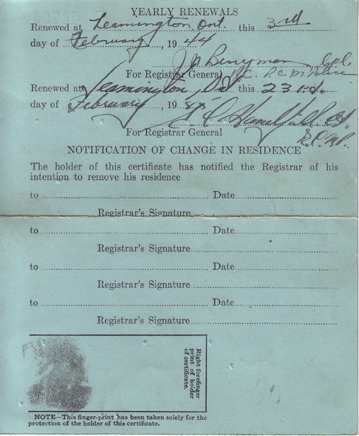 YEARLY RENEWALS
Renewed at Leamington Ont. this 3rd
day of February, 1944
J A Berryman Cpl.
For Registrar General R.C.M. Police
Renewed at Leamington, Ont this 23rd.
day of February 19
For Registrar General
NOTIFICATION OF CHANGE IN RESIDENCE
The holder of this certificate has notified the Registrar of his
intention to remove his residence
to Date
Registrar's Signature
to Date
Registrar's Signature
to Date
Registrar's Signature
to Date
Registrar's Signature
Right forefinger
print of holder
of certificate.
NOTE—This finger-print has been taken solely for the
protection of the holder of this certificate.